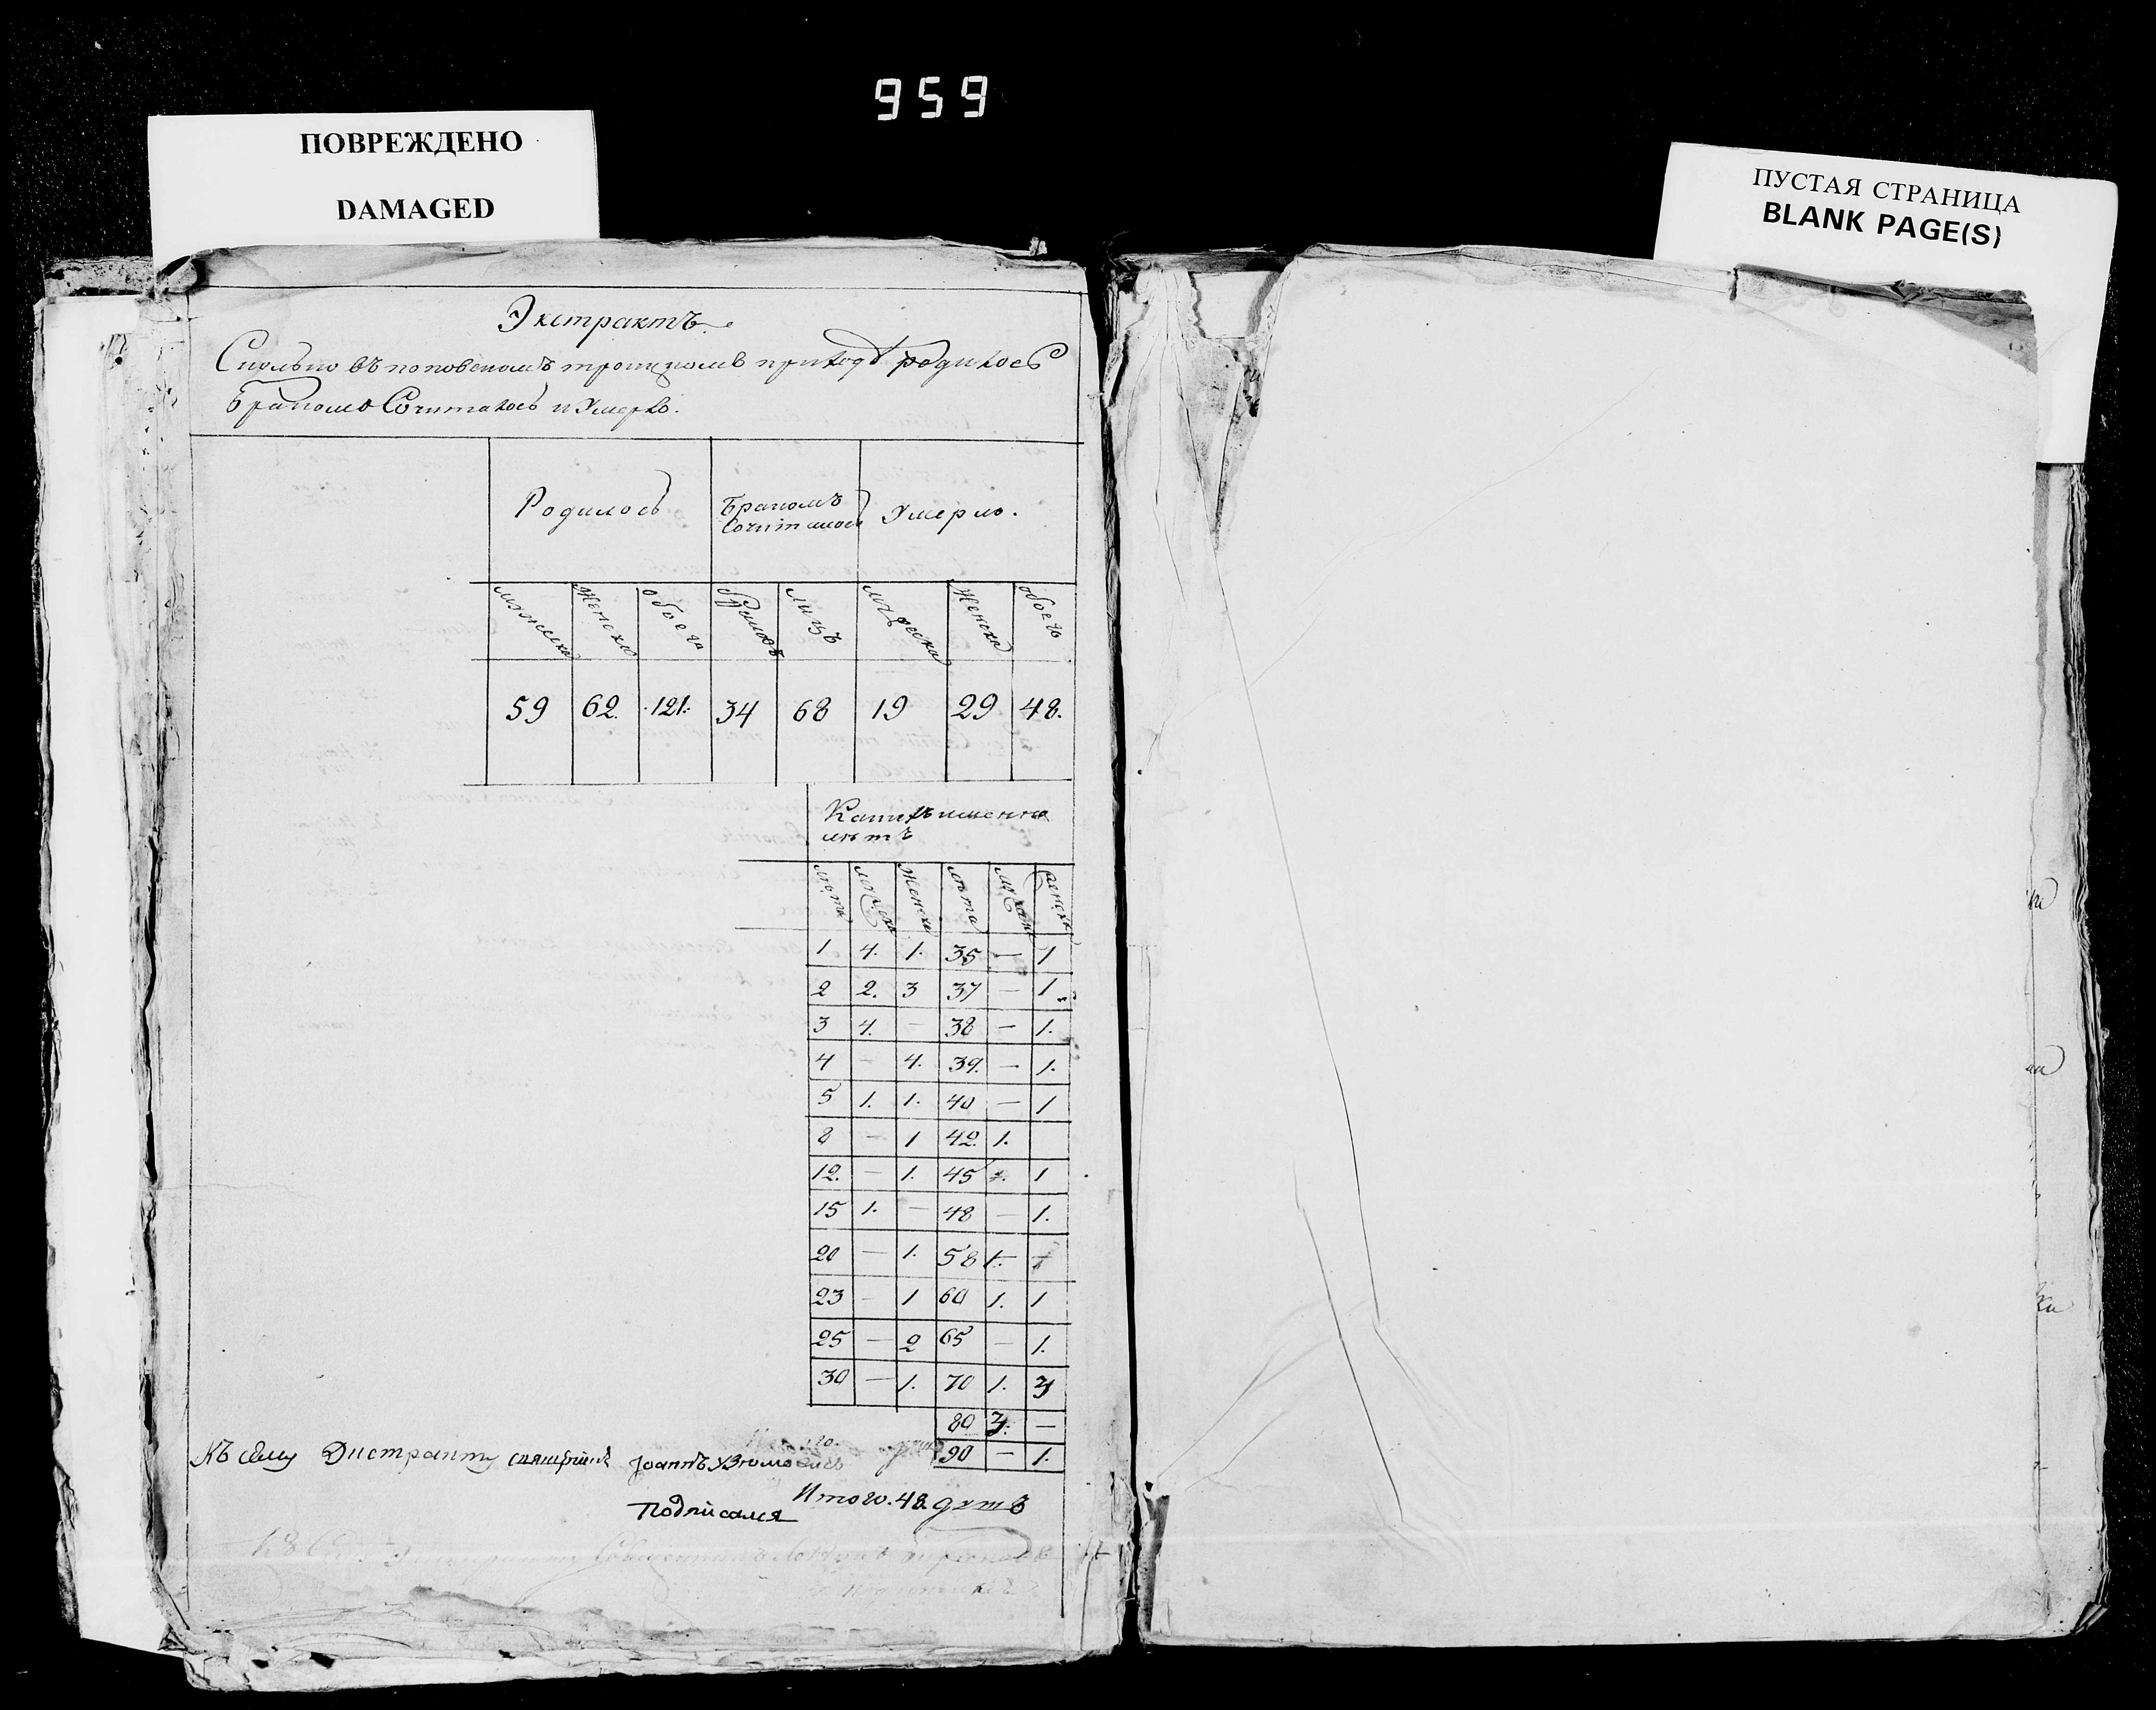 959
ПОВРЕЖДЕНО
DAMAGED
ПУСТАЯ СТРАНИЦА
BLANK PAGE(S)
Экстрактъ
Сколько въ троицкомъ приходѣ родилось
бракомъ Сочиталось и Умерло.
Родилось Бракомъ Умерло.
Сочиталось
мужеска женска обоего браковъ лицъ мужеска женска обоего
59 62. 121. 34 68 19 29 48.
лѣтъ
лѣта женска лѣта женска
1 4. 1. 35 — 1
2 2. 3 37 — 1
3 4. — 38 — 1.
4 — 4. 39. — 1.
5 1. 1. 40 — 1
8 — 1 42. 1.
12. — 1. 45 1
15 1. — 48 — 1.
20 — 1. 58 1.
23 — 1 60 1. 1
25 — 2 65 — 1.
30 — 1. 70 1. 3
80 3. —
90 — 1.
Къ сему Экстракту Іоаннъ
Подписался
Итого. 48. душъ